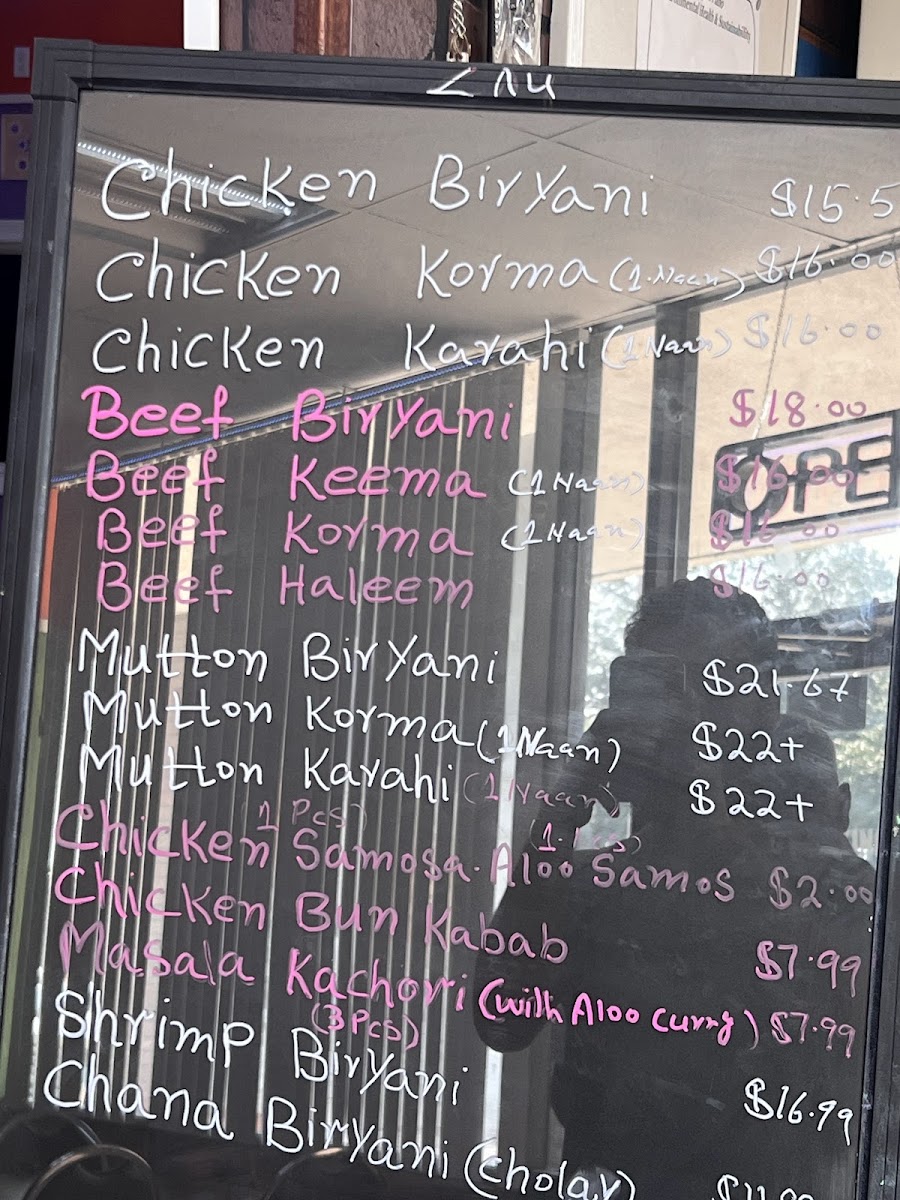 Chicken Biryani $15.5
Chicken Korma (1.Naan) $16.00
Chicken Karahi (1 Naan) $16.00
Beef Biryani $18.00
Beef Keema (1 Naan) $16.00
Beef Korma (1 Naan) $16.00
Beef Haleem $16.00
Mutton Biryani
Mutton Korma (1 Naan) $22+
Mutton Karahi (1 Naan) $22+
1 Pcs)
Chicken Samosa. Aloo Samos $2.00
Chicken Bun Kabab $7.99
Masala Kachori (with Aloo curry) $7.99
(3 Pcs)
Shrimp Biryani $16.99
Chana Biryani (cholay)
OPE